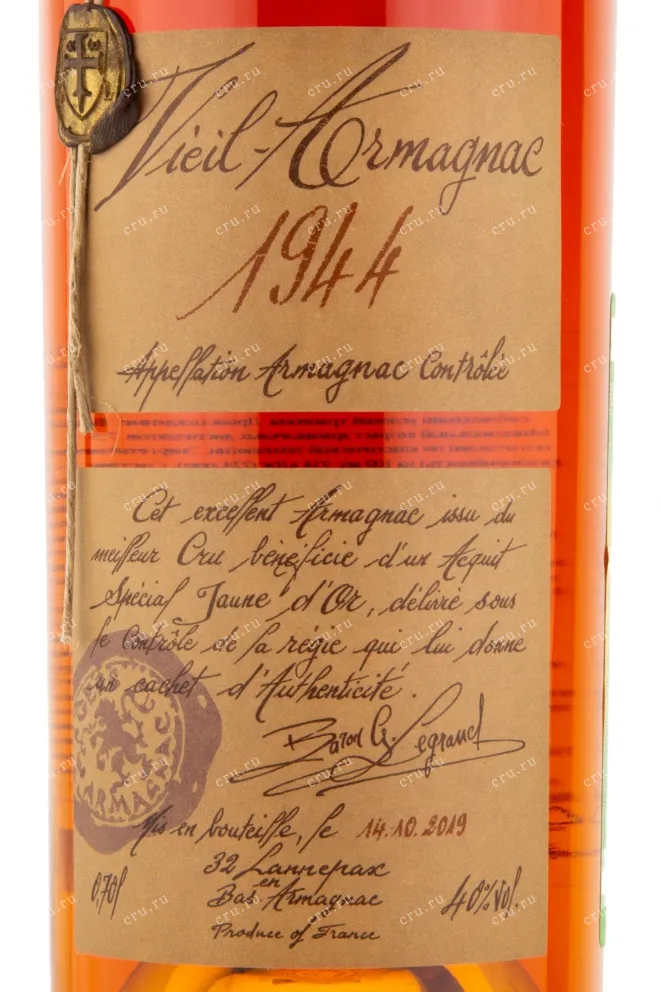 Vieil-Armagnac
1944
Appellation Armagnac Contrôlée
Cet excellent Armagnac issu du
meilleur Cru bénéficie d'un Acquit
Spécial Jaune d'Or, délivré sous
le Contrôle de la régie qui lui donne
un cachet d'Authenticité.
Baron G. Legrand
ARMAGNAC
Mis en bouteille, le 14.10.2019
32 Lannepax
en
Bas Armagnac
0,70l
40%vol.
Produce of France
cru.ru